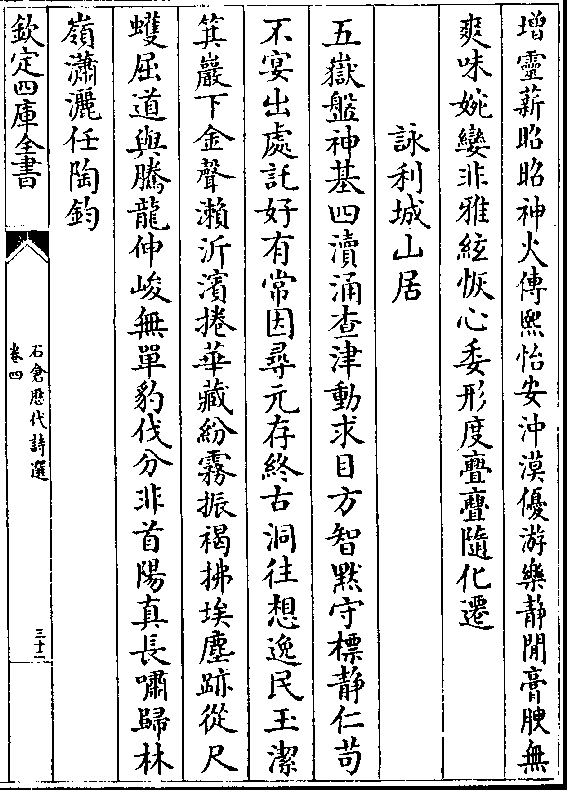 增靈薪昭昭神火傳熙怡安沖漠優游樂静閒膏腴無
爽味婉孌非雅絃恢心委形度亹亹隨化遷
詠利城山居
五嶽盤神基四瀆涌查津動求目方智黙守標静仁苟
不宴出處託好有常因尋元存終古洞往想逸民玉潔
箕巖下金聲瀨沂濱捲華藏紛霧振褐拂埃塵跡從尺
蠖屈道與騰龍伸峻無單豹伐分非首陽真長嘯歸林
嶺瀟灑任陶鈞
欽定四庫全書
石倉歴代詩選
卷四
三十二